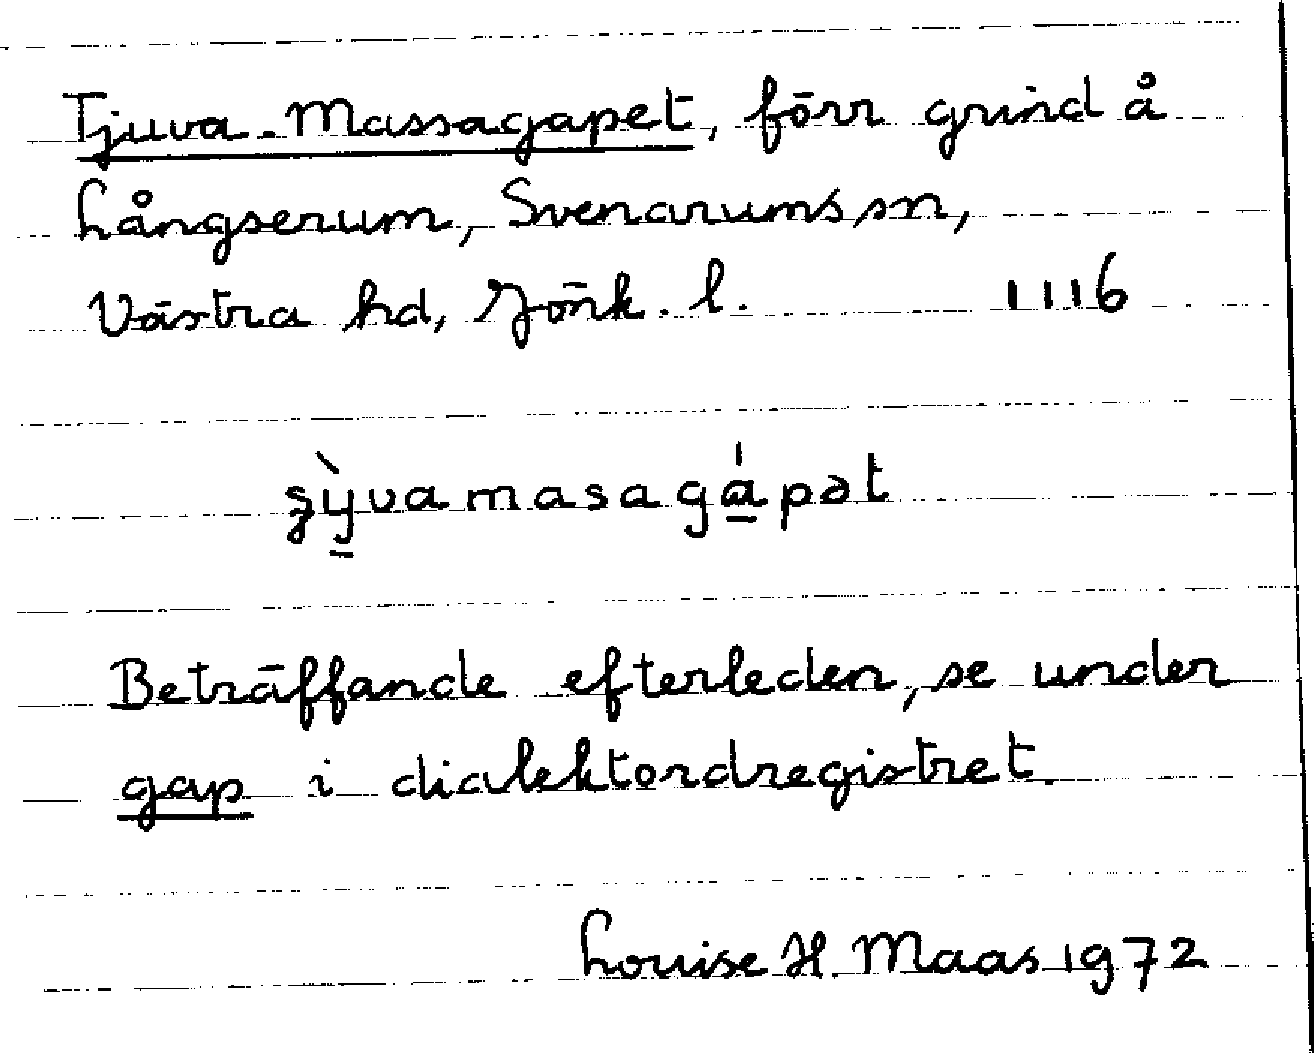 Tjuva-Massagapet, förr grind å
Långserum, Svenarums sn,
Västra hd, Jönk. l. 1116
ʂỳvamasagápət
Beträffande efterleden, se under
gap i dialektordregistret.
Louise H. Maas 1972